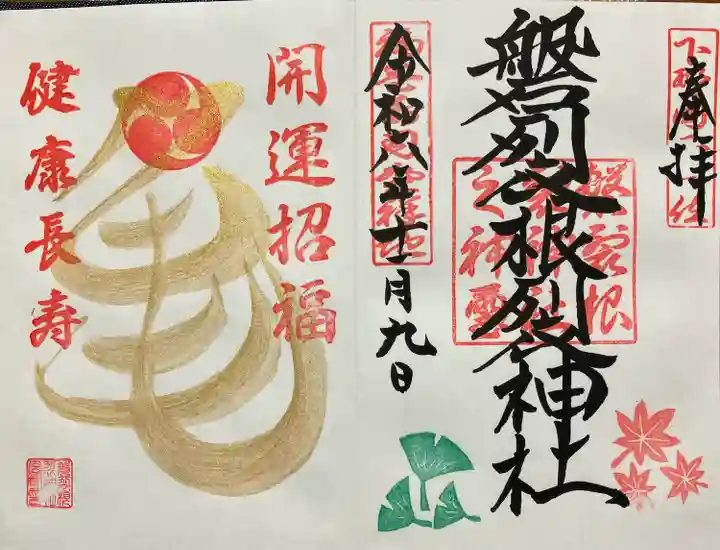 奉拝
磐裂根裂神社
磐裂根
裂神社
之神璽
令和六年十一月九日
開運招福
健康長寿